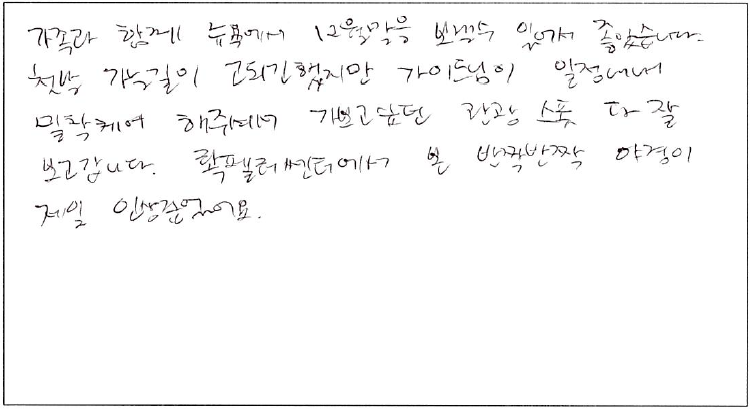 가족과 함께 뉴욕에서 12월말을 보낼수 있어서 좋았습니다.
첫날 가는길이 고되긴했지만 가이드님이 일정내내
밀착케어 해주셔서 가보고싶던 관광 스폿 다 잘
보고갑니다. 록펠러센터에서 본 반짝반짝 야경이
제일 인상깊었어요.